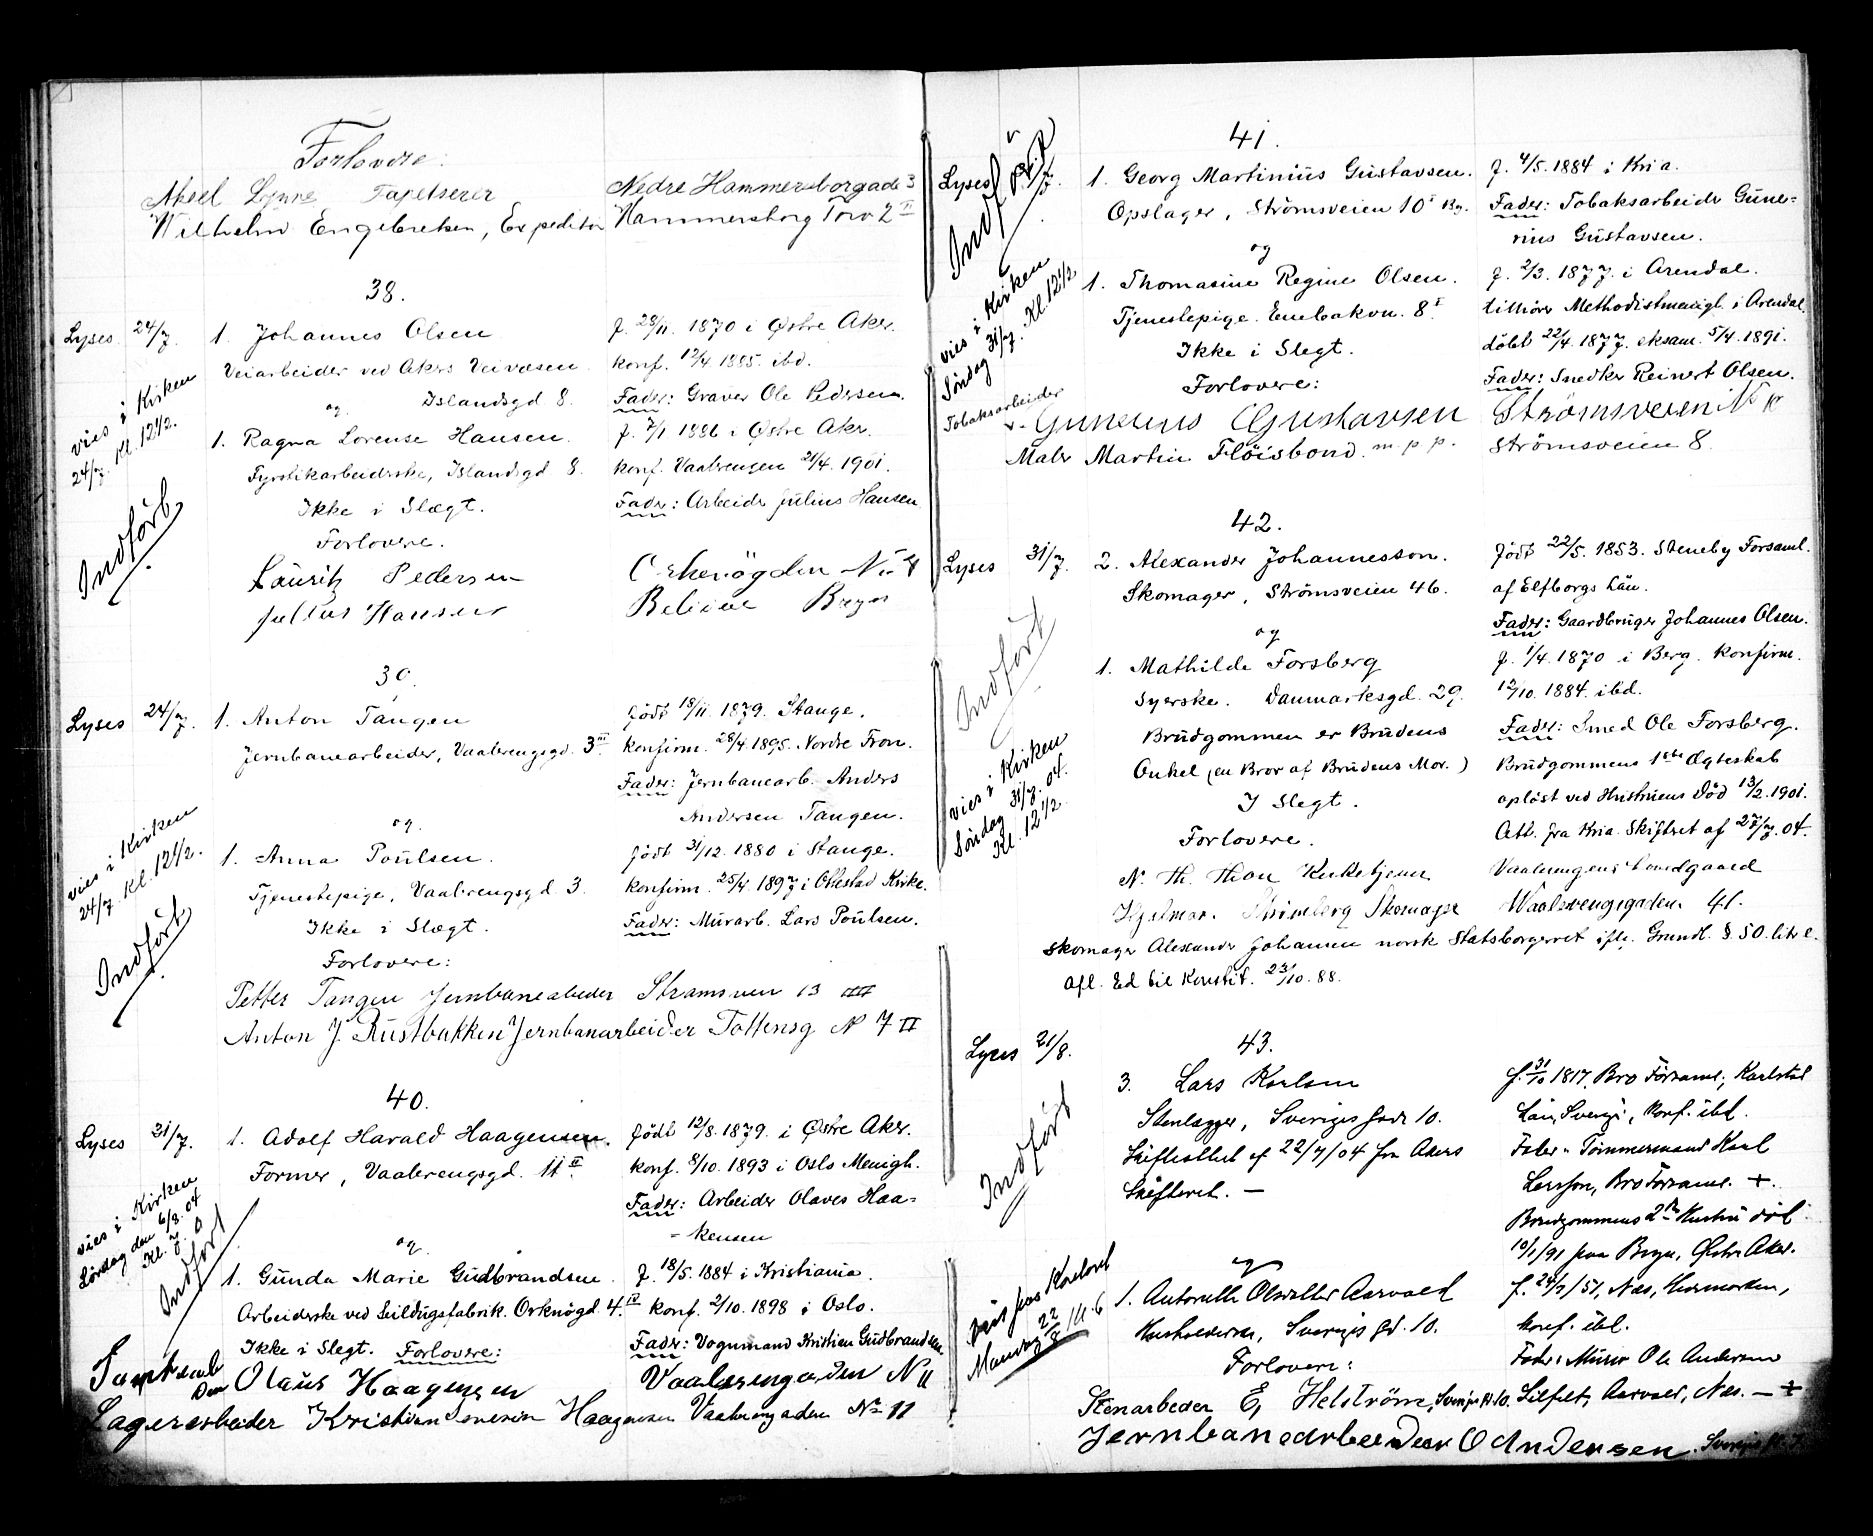 Forlovere:
Aksel Lynne Tapetserer Nedre Hammersborgade 3
Wilhelm Engebretsen, Expeditør Hammersborg Torv 2 II
38.
Lyses 24/7. 1. Johannes Olsen f. 28/11. 1870 i Østre Aker.
Veiarbeider ved Akers Veivæsen konf. 12/4 1885. ibd.
og Islandsgd 8. Fader: Graver Ole Pedersen.
vies i Kirken
24/7. Kl. 12 1/2.
1. Ragna Lorense Hansen. f. 7/1 1886 i Østre Aker.
Fyrstikarbeiderske, Islandsgd 8. konf. Vaalerengen 21/4. 1901.
Ikke i Slægt. Fader: Arbeider Julius Hansen
Indført
Forlovere.
Lauritz Pedersen
Julius Hansen
39.
Lyses 24/7. 1. Anton Tangen født 18/11. 1879. Stange.
Jernbanearbeider, Vaalerengsgd. 3 III konfirm. 28/4 1895. Nordre Fron.
Fader: Jernbanearb. Anders
Andersen Tangen.
vies i Kirken
24/7 Kl. 12 1/2.
og.
1. Anna Poulsen. født 31/12. 1880 i Stange.
Tjenestepige, Vaalrengsgd 3. konfirm. 25/4 1897 i Ottestad Kirke.
Ikke i Slægt. Fader: Murarb. Lars Poulsen.
Indført
Forlovere:
Petter Tangen Jernbanearbeder Strømsveien 13 III
Anton J. Rustbakken Jernbanarbeider Tottensg N 7 II
40.
Lyses 31/7. 1. Adolf Harald Haagensen. født 12/8. 1879. i Østre Aker.
Former, Vaalerengsgd. 11 II konf. 8/10. 1893 i Oslo Menigh.
Fader: Arbeider Olaves Haa-
kensen
vies i Kirken
Lørdag den 6/8. 04
Kl. 7.
Indført
og.
1. Gunda Marie Gudbrandsen f. 18/5. 1884 i Kristiania.
Arbeiderske ved Seildugsfabrik. Orknøgd. 4. IV konf. 2/10. 1898 i Oslo.
Ikke i Slegt. Forlovere: Fader: Vognmand Kristian Gudbrandsen
Olaus Haagensen Vaalerengaden N 11
Lagerarbeider Kristian Haagensen Vaalerengaden No 11
41.
Lyses 1. Georg Martinius Gustavsen. f. 4/5. 1884 i Kria.
Opslager, Strömsveien 10 I By. Fader: Tobaksarbeider Gune-
rius Gustavsen.
Indført
og
1. Thomasine Regine Olsen. f. 2/3. 1877. i Arendal.
Tjenestepige. Enebakvn. 8 I tilhører Methodistmenigh. i Arendal
Ikke i Slegt. döbt 22/4. 1877. eksam. 5/4 1891.
vies i Kirken
Søndag 31/7. Kl. 12 1/2
Forlovere: Fader: Snedker Reinert Olsen.
Tobaksarbeider
Gunerius Gustavsen Strömsveien No 10
Maler Martin Flöisbond. m.p.p. Strömsveien 8.
42.
Lyses 31/7. 2. Alexander Johannesson. født 22/5. 1853. Steneby Forsaml.
Skomager, Strömsveien 46. af Elfborgs Län.
Fader: Gaardbruger Johannes Olsen.
og
Indført
1. Mathilde Forsberg f. 1/4. 1870 i Berg. konfirm.
Syerske. Danmarksgd. 29. 12/10. 1884. ibd.
Brudgommen er Brudens Fader: Smed Ole Forsberg.
Onkel (en Bror af Brudens Mor.) Brudgommens 1ste Ægteskab
I Slegt. opløst ved Hustruens Død 13/2. 1901.
vies i Kirken
Søndag 31/7. 04.
Kl. 12 1/2.
Forlovere. Att. fra Kria. Skifteret af 27/7. 04.
N. Th. Thon Kirketjener Vaalerengens
Hjalmar Strömberg Skomager Waalerengsgaden 41.
Skomager Alexander Johansen norsk Statsborgerret iflg. Grundl. § 50. litr e.
Afl. Ed til Konstit. 23/10. 88.
43.
Lyses 21/8.
3. Lars Karlsen f. 31/10 1817. Bro Församl., Karlstad
Stenlægger, Sveriges Gade 10. Län, Sverige, Konf. ibd.
Skifteattest af 22/7/04 fra Akers Fader: Tømmermand Karl
Skifteret. — Larsson, Bro Församl. +.
Indført
Brudgommens 2den Hustru død
10/1/91 paa Bryn, Østre Aker.
og
1. Olsdatter Aarvold f. 24/7/51, Næs, Hedemarken,
Husholderske, Sveriges gd. 10. konf. ibd.
Mandag 22/8 Kl. 6
Forlovere: Fader: Murer Ole Andersen
Stenarbeder E, Helström, Sverigesgd 10. Aarvold, Næs. — +
Jernbanearbeider O Andersen. Sveriges gd.